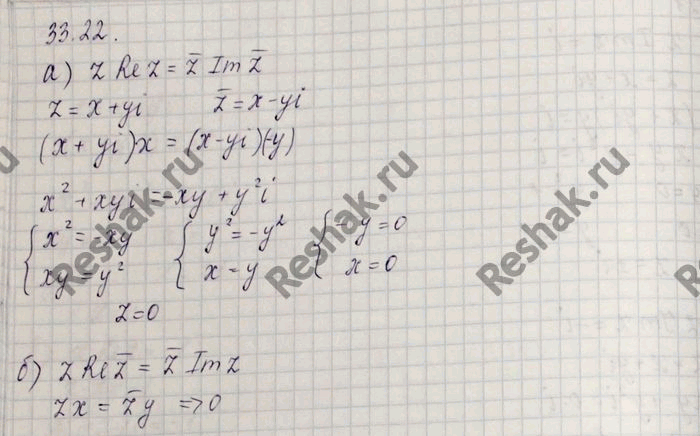 33.22.
а) z Re z = z̅ Im z̅
z = x + yi     z̅ = x - yi
(x + yi)x = (x - yi)(-y)
x² + xyi = -xy + y²i
{ x² = -xy   { y² = -y²   { y = 0
{ xy = y²   { x = y   { x = 0
z = 0
б) z Re z̅ = z̅ Im z
zx = z̅y => 0
Reshak.ru
Reshak.ru
Reshak.ru